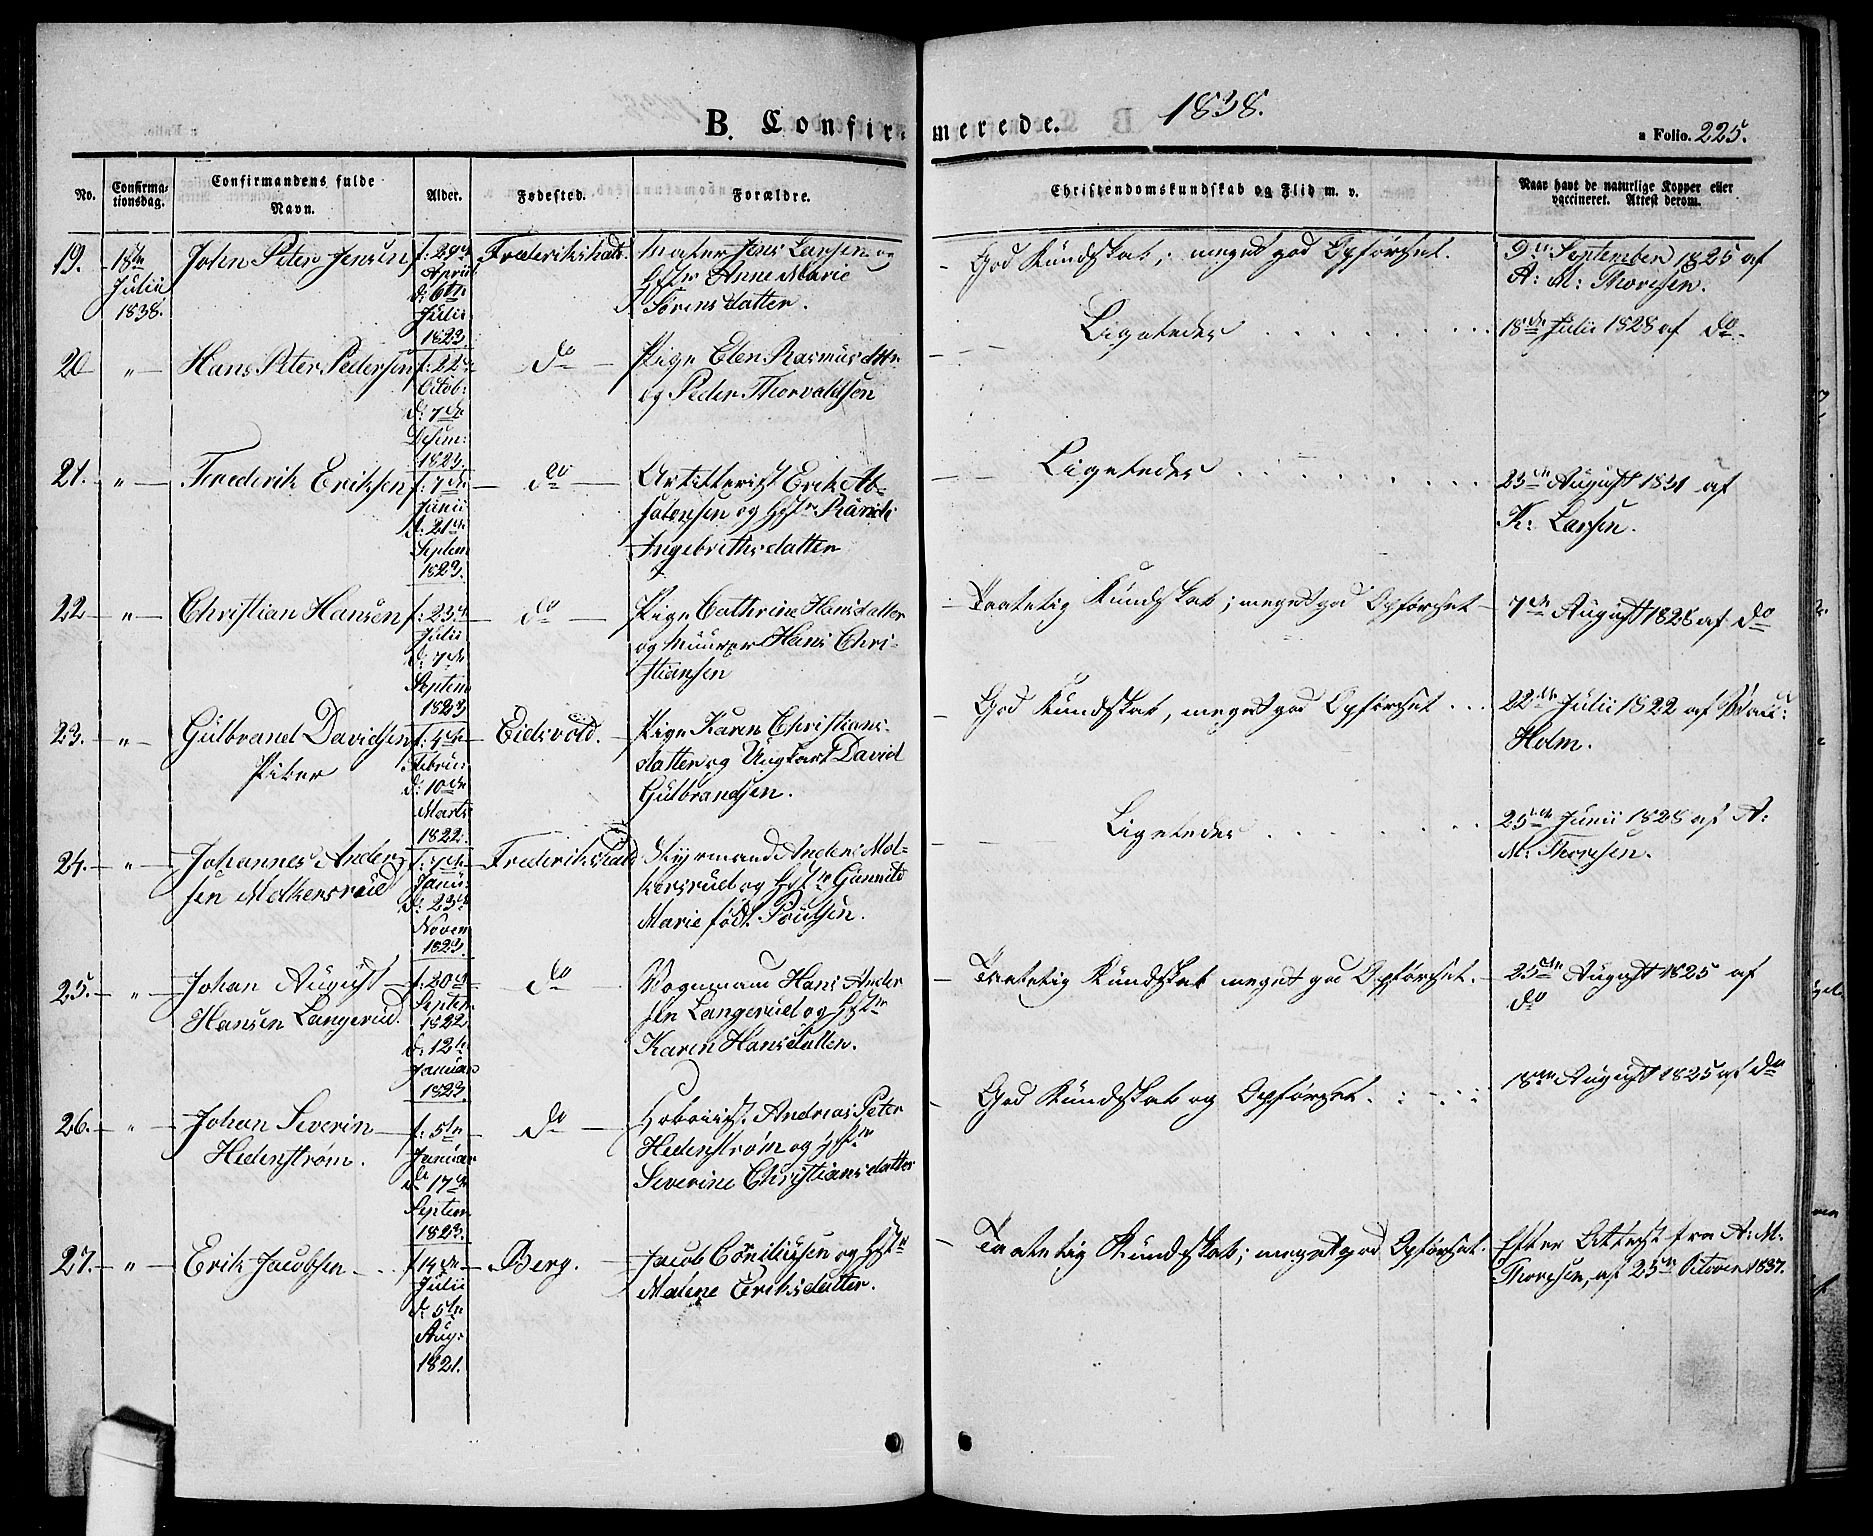 B. Confirmerede. 1838.
a Folio. 225.
No.
Confirma-
tionsdag.
Confirmandens fulde
Navn.
Alder.
Fødested.
Forældre.
Christendomskundskab og Flid m. v.
Naar havt de naturlige Kopper eller
vaccineret. Attest derom.
19.
18de
Julii
1838.
John Peter Jensen
f: 29de
April
d: 6te
Julii
1823
Frederikshald.
Jens Larsen og
Hstr Anne Marie
Sørensdatter.
God Kundskab; meget god Opførsel.
9de September 1825 af
A: M: Thoresen.
20
"
Hans Peter Pedersen
f: 22de
Octob:
d: 7de
Decem:
1823.
do
Pige Elen Rasmusdtr
og Peder Thorvaldsen
Ligeledes
18de Julii 1828 af do
21.
"
Frederik Eriksen
f: 7de
Junii
d: 21de
Septem
1823.
do
Artillerist Erik Ab-
salonsen og Hstr
Ingebrethsdatter
Ligeledes
23de August 1831 af
K: Larsen.
22
"
Christian Hansen
f: 23de
Julii
d: 7de
Septem
1823
do
Pige Cathrine Hansdatter
og Muurer Hans Chri-
stiansen
Taalelig Kundskab; meget god Opførsel
7de August 1828 af do
23.
"
Gulbrand Davidsen
f: 4de
Februar:
d: 10de
Marts
1822.
Eidsvold.
Pige Karen Christians-
datter og Ungkarl David
Gulbrandsen.
God Kundskab, meget god Opførsel
22de Julii 1822 af
Holm.
24.
"
Johannes Ander-
sen Molkersrud
f: 7de
Junii
d: 23de
Novem
1823.
Frederikshald
Styrmand Anders Mol-
kersrud og Hstr Gunnild
Marie født Poulsen.
Ligeledes
25de Junii 1828 af A:
M: Thoresen.
25.
"
Johan August
Hansen Langerud.
f: 20de
Septem
1822
d: 12te
Januar
1823.
do
Vognmand Hans Ander
sen Langerud og Hstr
Karen Hansdatter.
Taalelig Kundskab meget god Opførsel.
25de August 1825 af
do
26.
"
Johan Severin
Hedenstrøm.
f: 5te
Januar
d: 17de
Septem
1823.
do
Hoboist Andreas Peter
Hedenstrøm og Hstr
Severine Christiansdatter
God Kundskab og Opførsel.
18de August 1825 af do
27.
"
Erik Jacobsen
f 14de
Julii
d: 5te
Aug:
1821.
Berg.
Jacob Corneliusen og Hstr
Malene Eriksdatter.
Taalelig Kundskab; meget god Opførsel.
Efter Attest fra A: M:
Thoresen, af 25de October 1837.